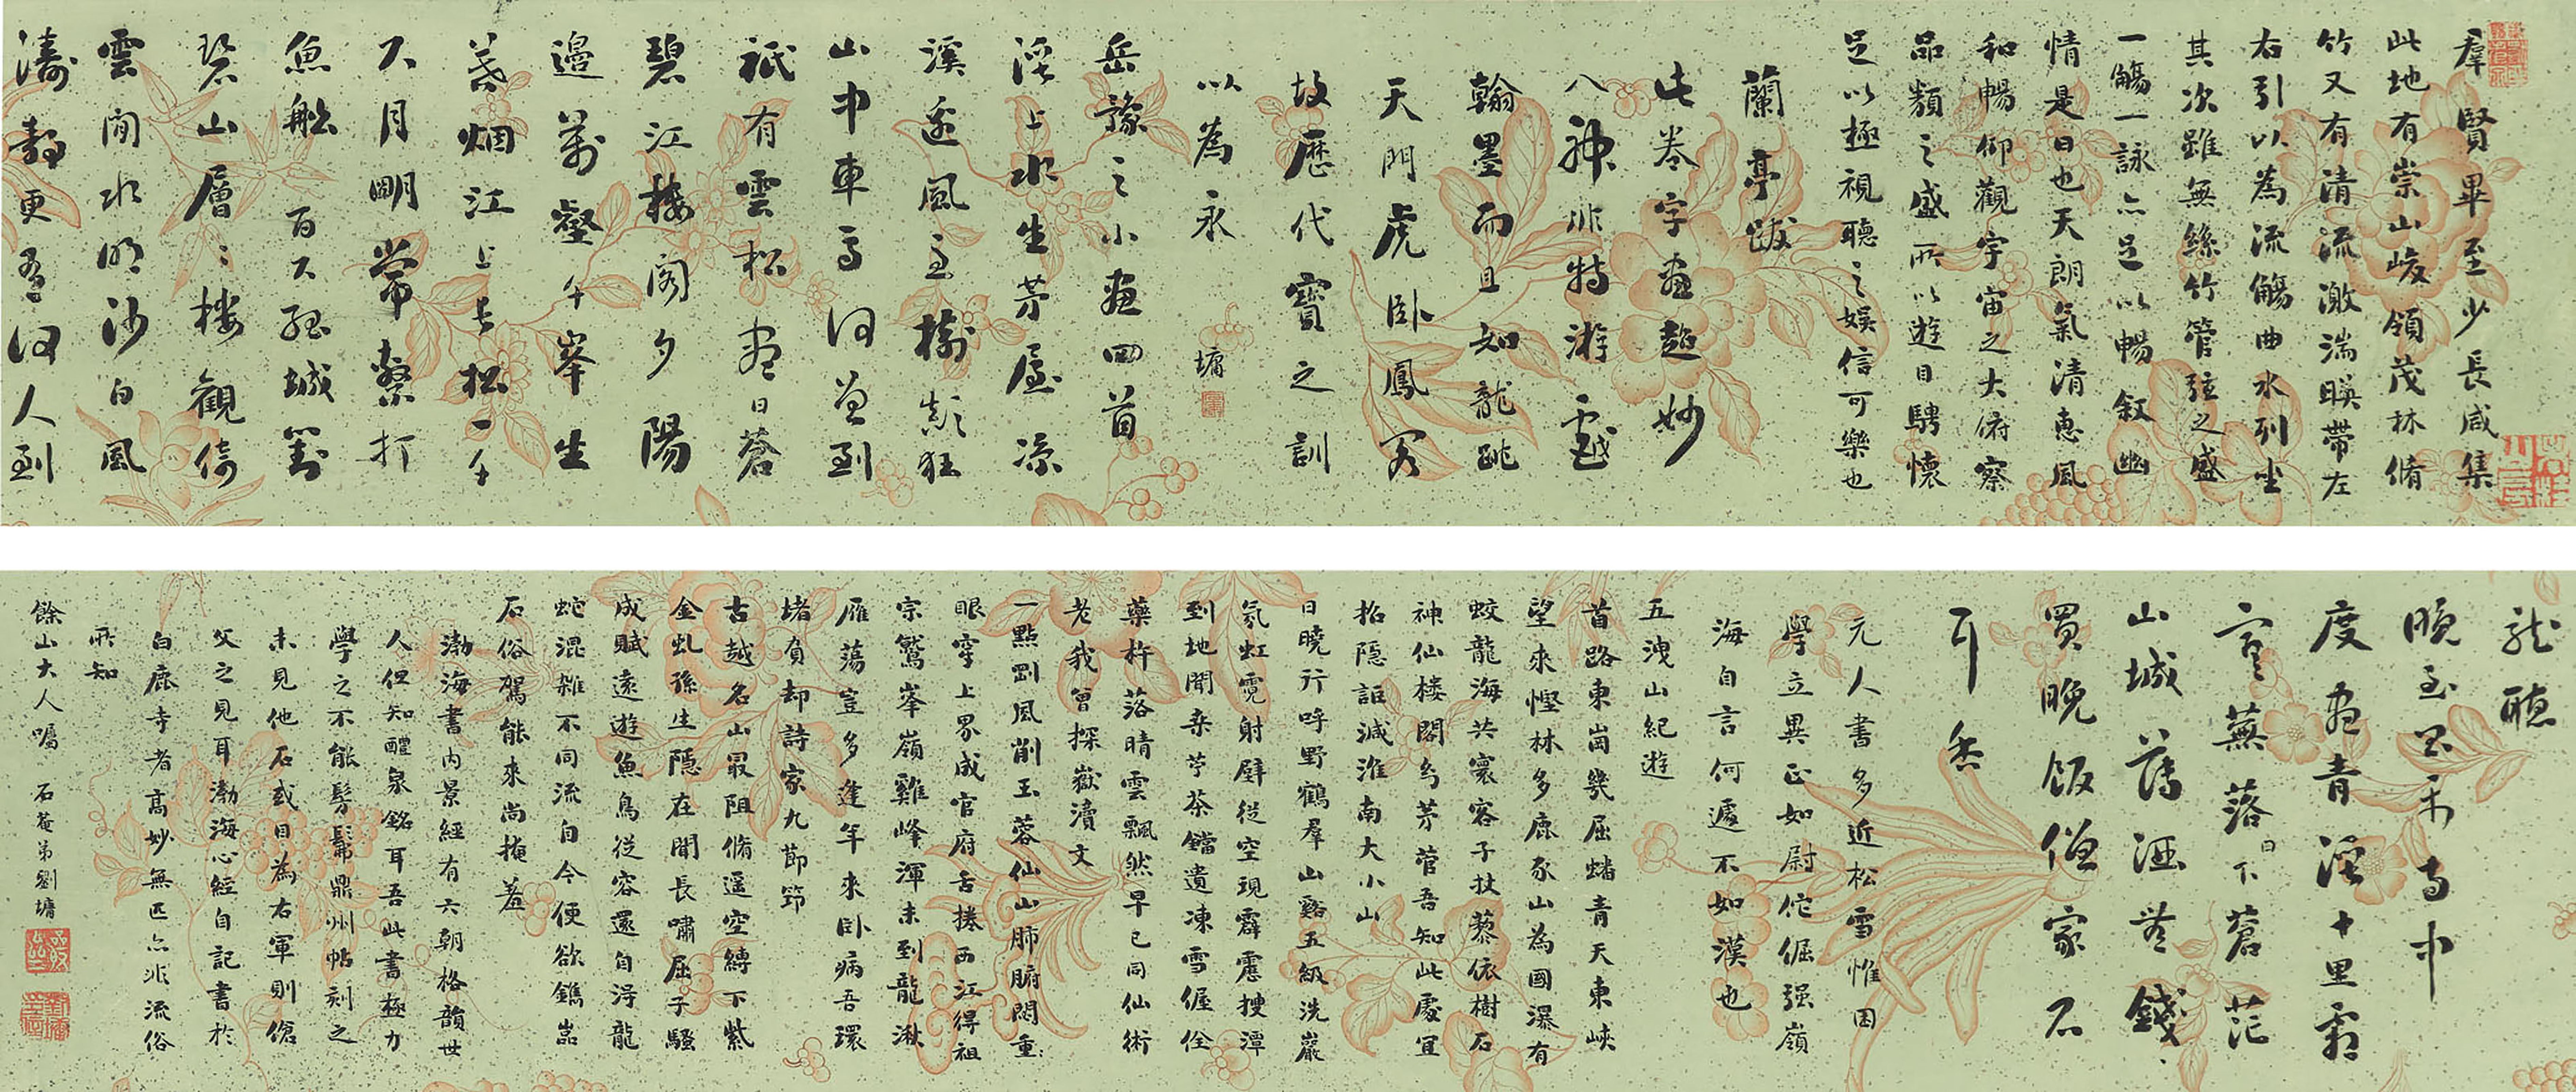 羣賢畢至少長咸集
此地有崇山峻領茂林脩
竹又有清流激湍暎帶左
右引以為流觴曲水列坐
其次雖無絲竹管弦之盛
一觴一詠亦足以暢敘幽
情是日也天朗氣清惠風
和暢仰觀宇宙之大俯察
品類之盛所以遊目騁懷
足以極視聽之娛信可樂也
蘭亭跋
此卷字畫超妙
八神非特游戲
翰墨而且如龍跳
天門虎臥鳳閣
故歷代寶之訓
以為永
墉
岳豫之小畫四首
溪上水生芳屋涼
溪迷風玉樹顛狂
山中車馬何曾到
祇有雲松盡日蒼
碧江樓閣夕陽
邊萬壑千峯生
暮烟江上長松一千
尺月明常繫打
魚船百尺孤城對
碧山層層樓觀倚
雲間水明沙白風
濤靜更有何人到
龍聽
晚至昆禾寺中
度畫青溪十里霜
官蕪落日下蒼茫
山城舊酒無錢
買晚飯僧家不
可忝
元人書多近松雪惟困
學立異正如尉佗倔强嶺
海自言何遽不如漢也
五洩山紀遊
首路東崗幾屈蟠青天東峽
望來慳林多鹿豕山為國瀑有
蛟龍海共寰客子扶藜依樹石
神仙樓閣勾芳菅吾知此處宜
招隱詎減淮南大小山
日曉行呼野鶴羣山谿五級洗巖
氛虹霓射壁從空現霹靂捜潭
到地聞棄苧茶鐺遺凍雪偓佺
藥杵落晴雲飄然早已同仙術
老我曾探嶽瀆文
一點罡風削玉蓉仙山肺腑閟重重
眼穿上界成官府舌捲西江得祖
宗鷲峯嶺雞峰渾未到龍湫
雁蕩豈多逢年來卧病吾環
堵負却詩家九節笻
古越名山最阻脩遥空縛下紫
金虬孫生隱在聞長嘯屈子騷
成賦遠遊魚鳥從容還自得龍
蛇混雜不同流自今便欲鐫嵓
石俗駕能來尚掩羞
渤海書內景經有六朝格韻世
人但知醴泉銘耳吾此書極力
學之不能髣髴鼎州帖刻之
未見他石或目為右軍則傖
父之見耳渤海心經自記書於
白鹿寺者高妙無匹亦非流俗
所知
餘山大人囑 石菴弟劉墉